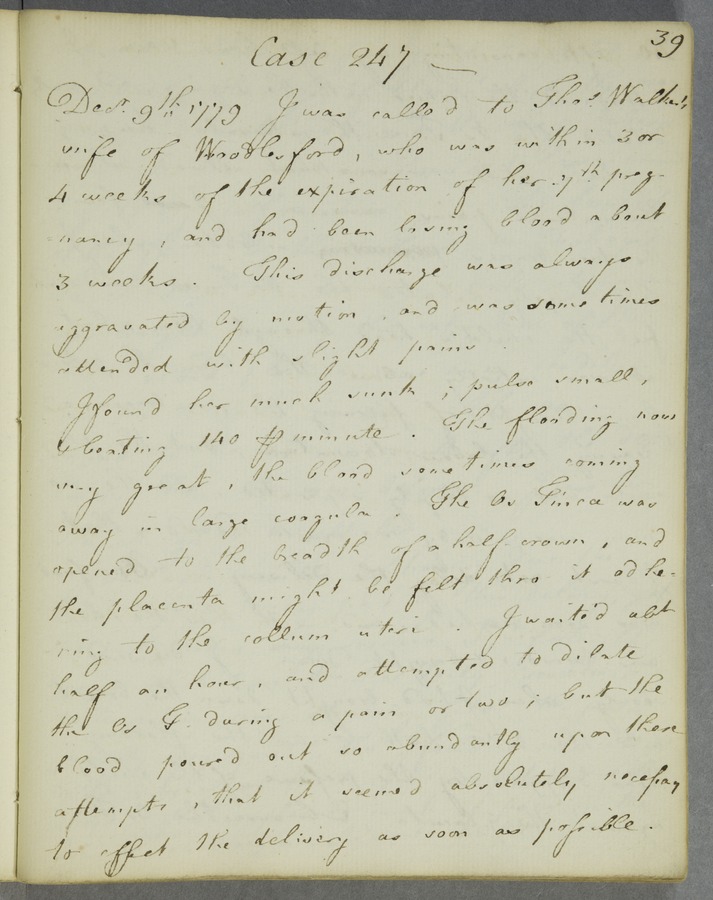 39
Case 247 —
Decr. 9th 1779 I was called to Thos. Walker's
wife of Woodlesford, who was within 3 or
4 weeks of the expiration of her 7th preg-
nancy, and had been losing blood about
3 weeks. This discharge was always
aggravated by motion, and was sometimes
attended with slight pains.
I found her much sunk; pulse small,
& beating 140 ⅌ minute. The flooding now
very great, the blood sometimes coming
away in large coagula. The Os Tincæ was
opened to the breadth of a half-crown, and
the placenta might be felt thro it adhe-
ring to the collum uteri. I waited abt
half an hour, and attempted to dilate
the Os T. during a pain or two; but the
blood poured out so abundantly upon these
attempts, that it seem'd absolutely necessary
to effect the delivery as soon as possible.